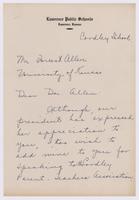 Lawrence Public Schools
Lawrence, Kansas
Cordley School.
Mr. Forrest Allen
University of Kansas
Dear Dr. Allen:
Although, our
president has expressed
her appreciation to
you, I too wish to
add mine to you for
speaking to Cordley
Parent-Teachers Association.